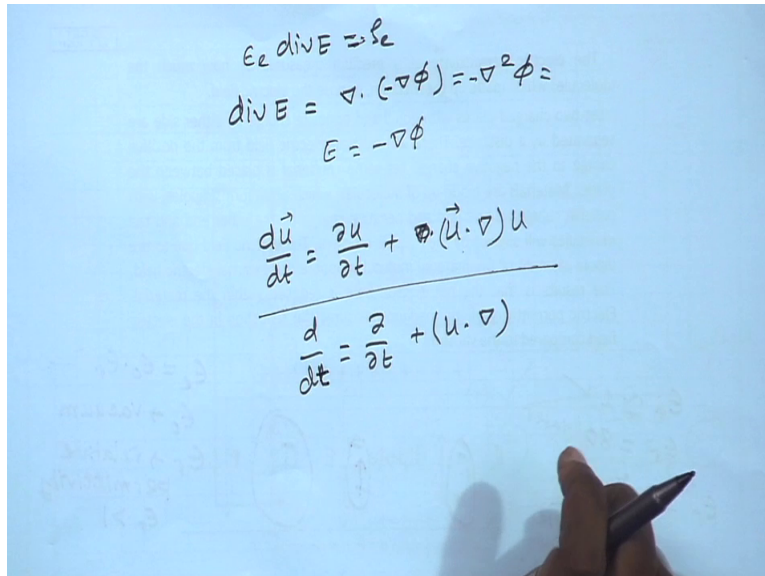 ϵₑ div E = ρₑ
div E = ∇. (-∇ϕ) = -∇²ϕ =
E = -∇ϕ
du⃗/dt = ∂u/∂t + (u⃗.∇)u
d/dt = ∂/∂t + (u.∇)